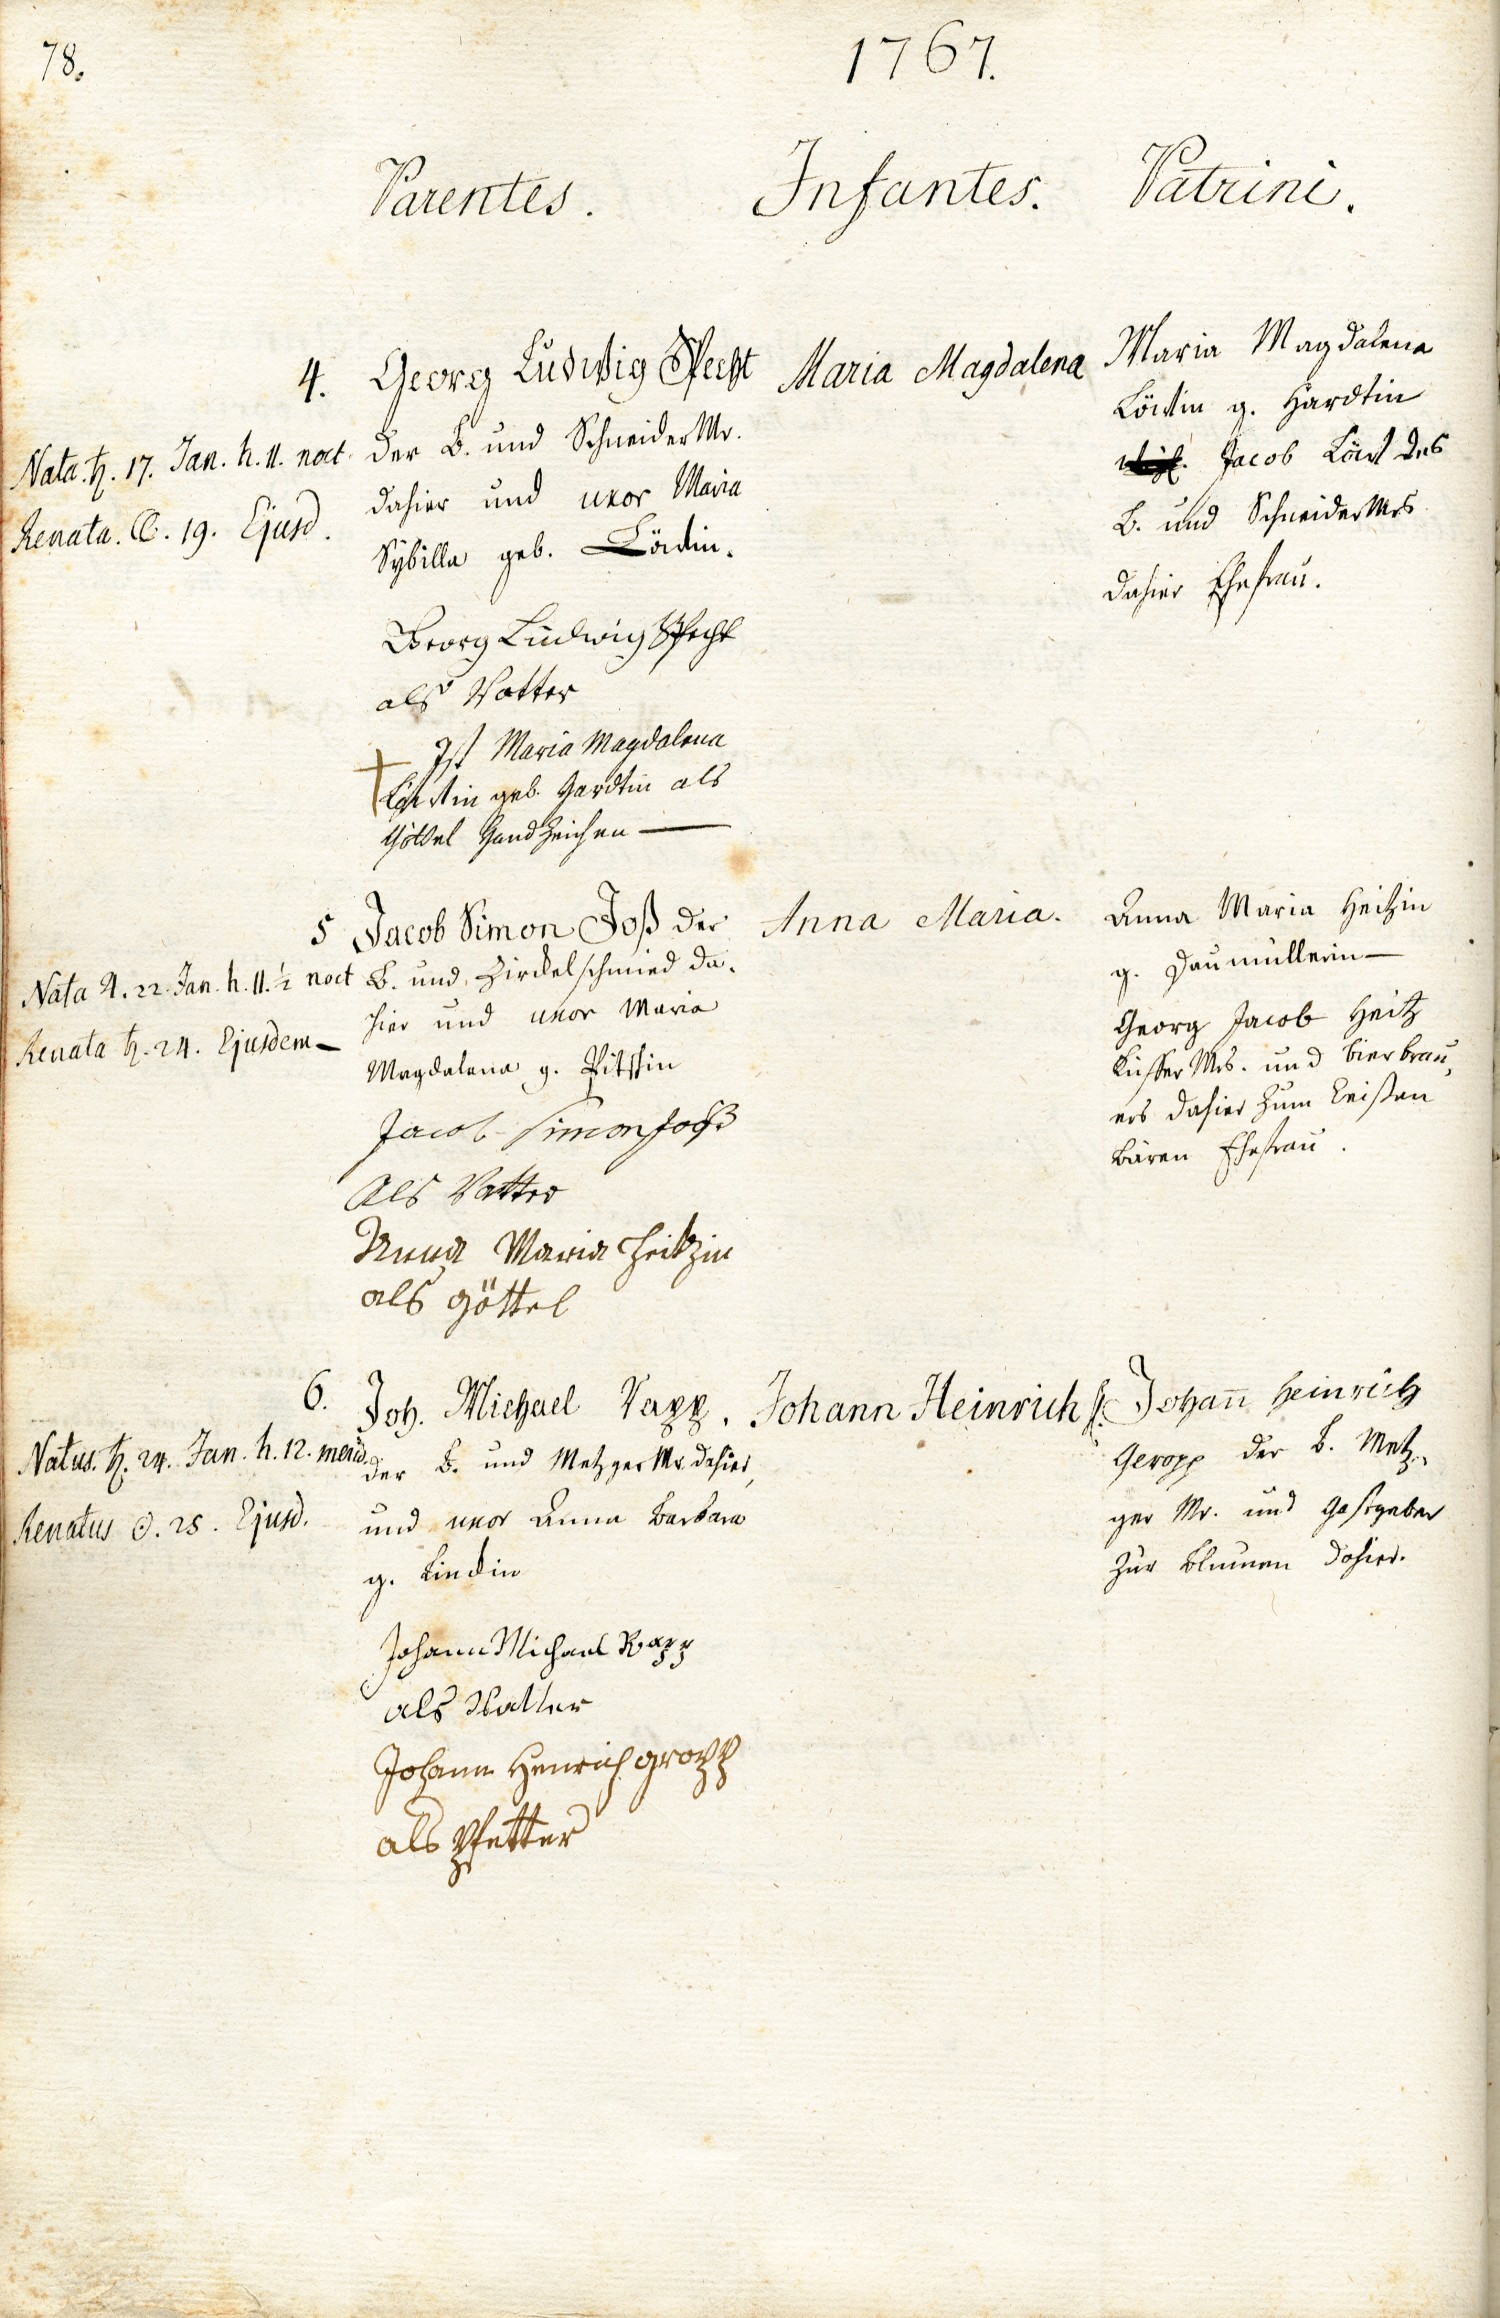 78.
1767.
Parentes.
Infantes.
Patrini.
4.
Nata. ♄. 17. Jan. h. 11. noct.
Renata. ☾. 19. Ejusd.
Georg Ludwig Specht
der B. und Schneider Mr.
dahier und uxor Maria
Sybilla geb.
Georg Ludwig Specht
als Vatter
Ist Maria Magdalena
geb. Hardtin als
Göttel Handzeichen —
Maria Magdalena
Maria Magdalena
g. Hardtin
Jacob des
B. und Schneider Mrs
dahier Ehefrau.
5
Nata ♃. 22. Jan. h. 11. ½ noct
Renata ♄. 24. Ejusdem —
Jacob Simon Joß der
B. und Zirckelschmied da-
hier und uxor Maria
Magdalena g.
Jacob Simon Joß
als Vatter
Anna Maria Heitzin
als göttel
Anna Maria.
Anna Maria Heitzin
g. Daumüllerin —
Georg Jacob Heitz
Kieffer Mrs. und bierbrau-
ers dahier zum
bären Ehefrau.
6.
Natus. ♄. 24. Jan. h. 12. merid.
Renatus ☉. 25. Ejusd.
Joh. Michael Rapp.
der B. und Metzger Mr. dahier,
und uxor Anna Barbara
g. Lindin
Johann Michael Rapp
als Vatter
Johann Henrich gropp
als Pfetter
Johann Heinrich
Johann Heinrich
Geropp der B. Metz-
ger Mr. und Gastgeber
zur Blumen dahier.